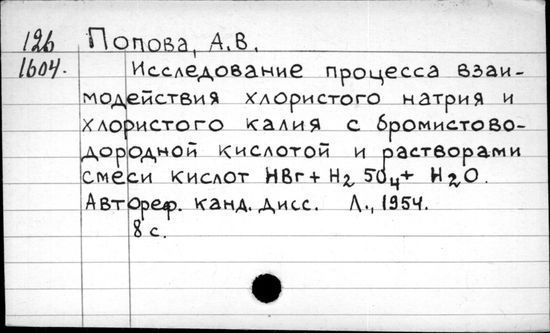 126 Попова, А.В.
1604. Исследование процесса взаи-
модействия хлористого натрия и
хлористого калия с бромистово-
дородной кислотой и растворами
смеси кислот HBr + H₂SO₄ + H₂O.
Автореф. канд. дисс. Л., 1954.
8 с.